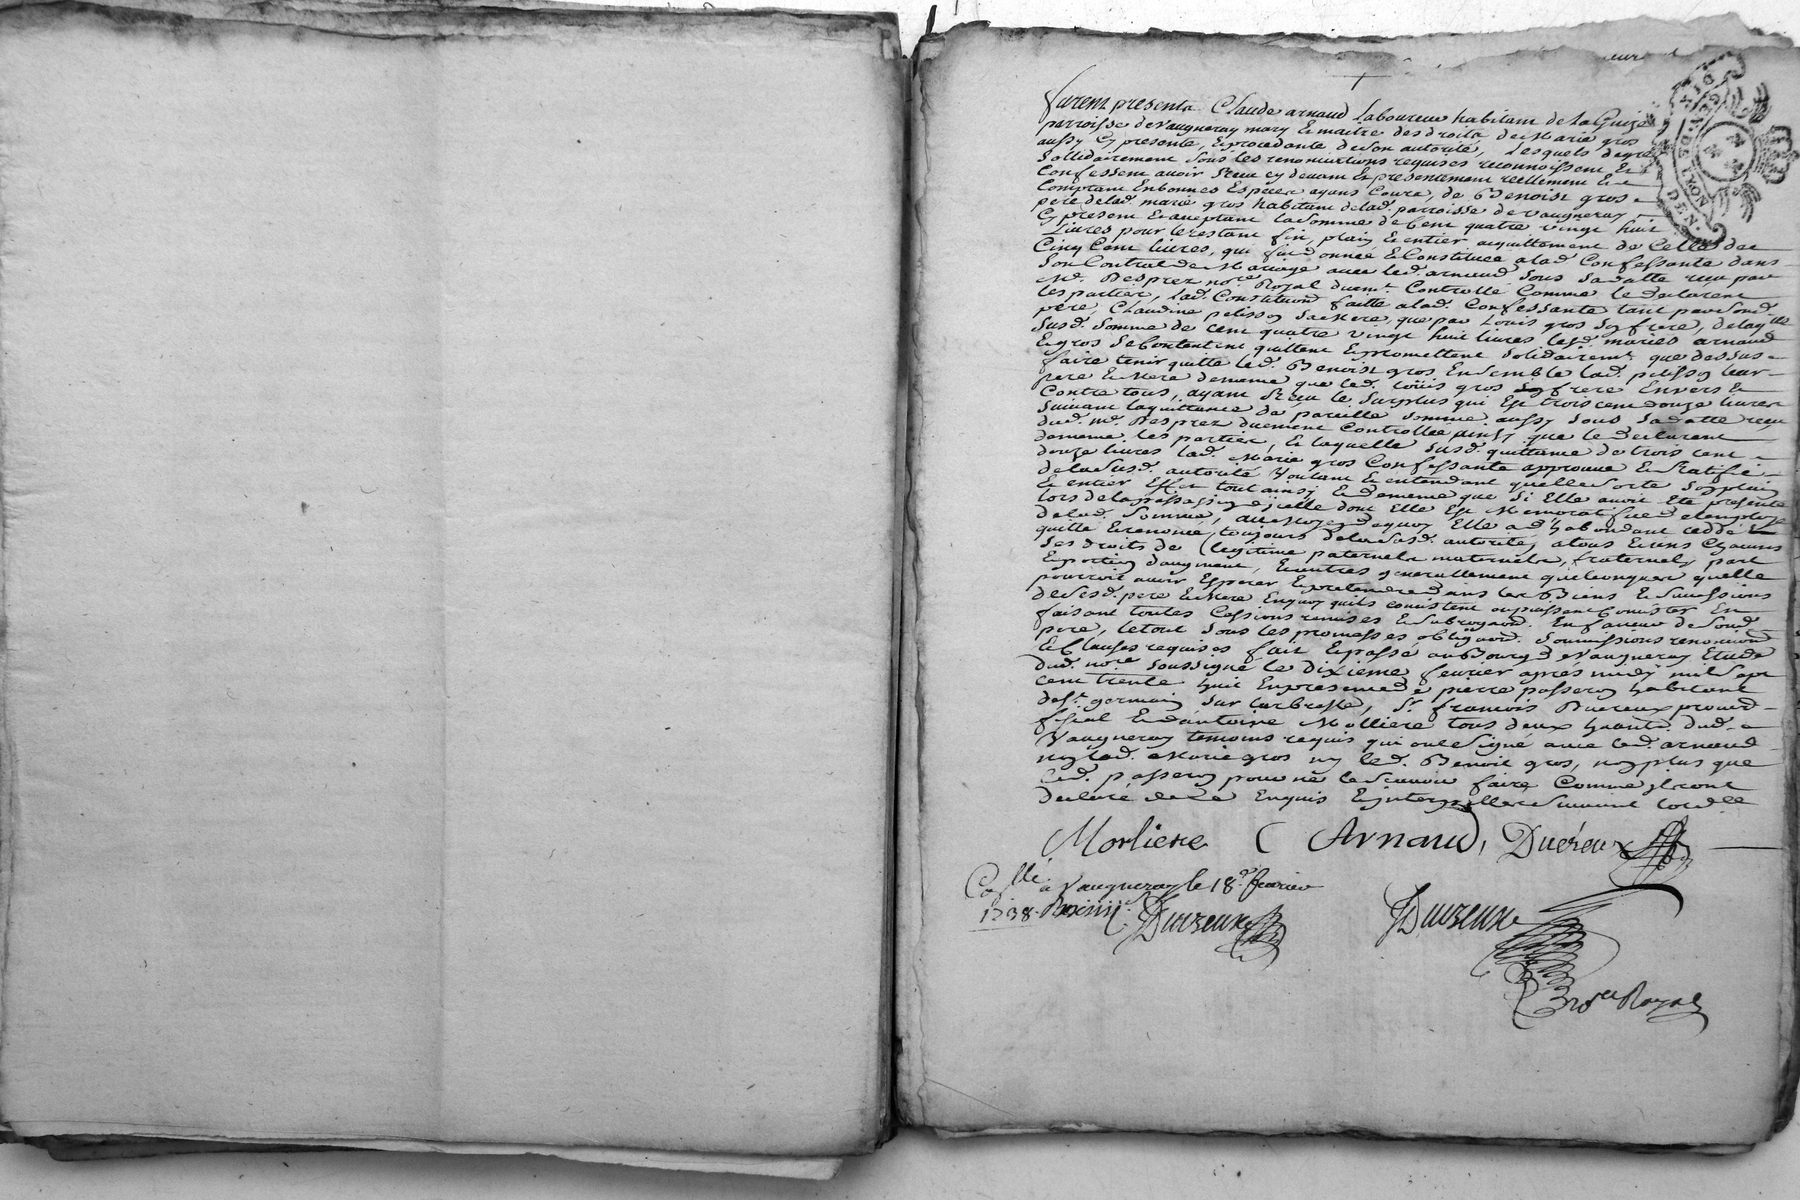 furent presents Claude arnaud Laboureur habitant de La
parroisse de vaugneray mary & maitre des droits de Marie gros
aussy cy presente, & procedante de son autorité, Lesquels de gré
sollidairement sous les renonciations requises reconnoissent &
Confessent avoir Receu cy devant & presentement reellement &
Comptant En bonnes Especes ayans Cours, de Benoist gros
pere de lad. marie gros habitant de lad. parroisse de vaugneray
Cy present & acceptant la somme de Cent quatre vingt huit
Livres pour le restant fin, plain & entier acquittement de Celle de
Cinq Cent livres, qui fut donnée & Constituée a lad. Confessante dans
son Contrat de Mariage avec led. arnaud sous sa datte receu par
Me. Desprez nore. Royal duemt. Controllé Comme le declarent
les parties, lad. Constitution faitte a lad. Confessante tant par sond.
pere, Claudine pelisson sa Mere, que par Louis gros son frere, de laqlle
susd. somme de cent quatre vingt huit livres lesd. mariés arnaud
& gros se Contentent quittent & promettent solidairemt. que dessus
faire tenir quitte led. Benoist gros Ensemble lad. pelisson leur
pere & Mere de meme que led. Loüis gros son frere Envers &
Contre tous, ayant Receu le surplus qui Est trois cent douze livres
suivant la quittance de pareille somme aussy sous sa datte receu
dud. me. Desprez duement Controllée ainsy que le declarent
de meme les parties, & laquelle susd. quittance de trois cent
douze livres lad. Marie gros Confessante approuve & Ratifie
de la susd. autorité Voulant & entendant quelle sorte son plain
& entier Effet tout ainsy & de meme que si Elle avoit Eté presente
lors de la passation dicelle dont Elle Est Memorative & de l'employ
de lad. somme, au moyen de quoy Elle a d'habondant ceddé
quitté & renoncé, toujours de la susd. autorité, a tous & uns Chacuns
ses droits de legitime paternels maternels, fraternels part
& portion d'augment, & autres generallement quelconques quelle
pourroit avoir Esperer & pretendre dans les Biens & successions
de sesd. pere & Mere En quoy quils consistent ou puissent Consister En
faisant toutes Cessions remises & subrogaons. En faveur de sond.
pere, le tout sous les promesses obligaons. soumissions renonciaons
& Clauses requises fait & passé au Bourg de Vaugneray Etude
dud. nore. soussigné le dixieme fevrier après midy mil sept
cent trente huit En presence de pierre passeron habitant
de St. germain sur Larbresle, Sr. françois Ducreux procur.
fiscal & d'antoine Morliere tous deux habits. dud.
Vaugneray temoins requis qui ont signé avec led. arnaud
non lad. Marie gros ny led. Benoit gros, non plus que
led. passeron pour ne le scavoir faire Comme ils ont
declaré de ce Enquis & interpellés suivant lord.ce
Morliere C Arnaud, Ducreux
Collé. a Vaugneray le 18e. fevrier
1738. Ducreux
Ducreux
nore Royal